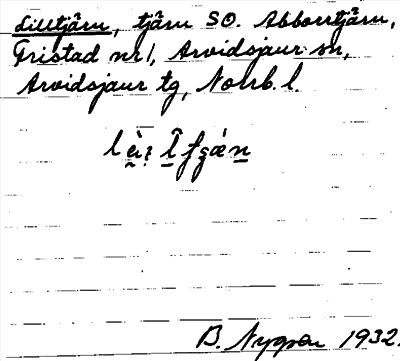 Lilltjärn, tjärn SO. Abborrtjärn,
Fristad nr 1, Arvidsjaur sn,
Arvidsjaur tg, Norrb. l.
B. Nygren 1932.